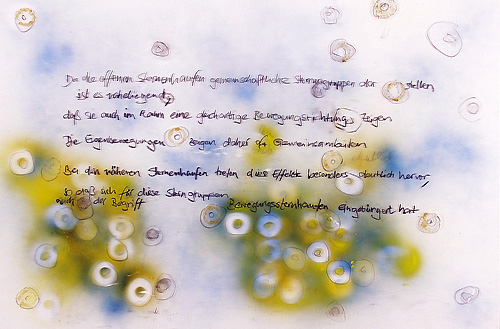 Da die offenen Sternenhaufen gemeinschaftliche Sterngruppen dar stellen
ist es naheliegend,
daß sie auch im Raum eine gleichartige Bewegungsrichtung zeigen
Die Eigenbewegungen zeigen daher oft Gemeinsamkeiten
Bei den näheren Sternenhaufen treten diese Effekte besonders deutlich hervor,
so daß sich für diese Sterngruppen
auch der Begriff Bewegungssternhaufen eingebürgert hat